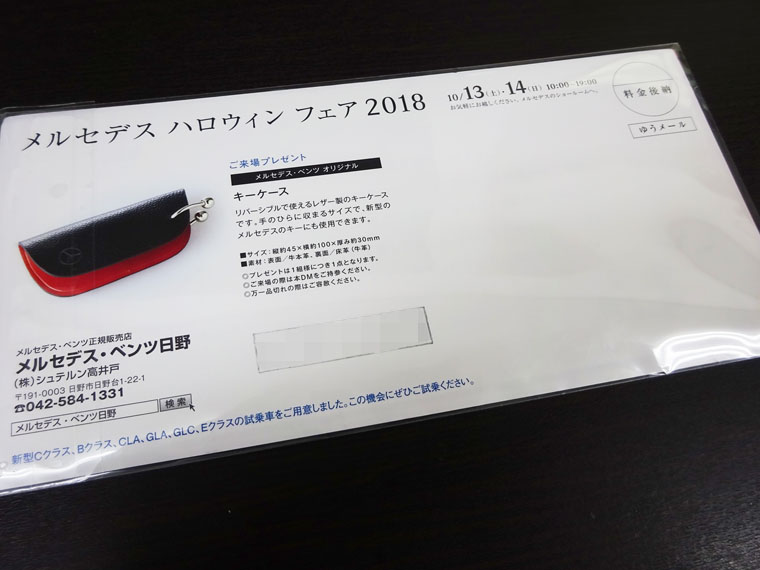 メルセデス ハロウィン フェア 2018
10/13(土)・14(日) 10:00 - 19:00
お気軽にお越しください。メルセデスのショールームへ。
料金後納
ゆうメール
ご来場プレゼント
メルセデス・ベンツ オリジナル
キーケース
リバーシブルで使えるレザー製のキーケース
です。手のひらに収まるサイズで、新型の
メルセデスのキーにも使用できます。
■サイズ:縦約45×横約100×厚み約30mm
■素材:表面/牛本革、裏面/床革(牛革)
◎プレゼントは1組様につき1点となります。
◎ご来場の際は本DMをご持参ください。
◎万一品切れの際はご容赦ください。
メルセデス・ベンツ正規販売店
メルセデス・ベンツ日野
(株)シュテルン高井戸
〒191-0003 日野市日野台1-22-1
☎042-584-1331
メルセデス・ベンツ日野 検索
新型Cクラス、Bクラス、CLA、GLA、GLC、Eクラスの試乗車をご用意しました。この機会にぜひご試乗ください。